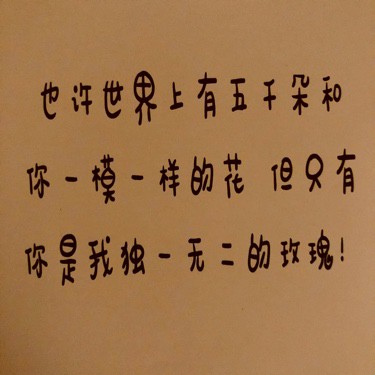 也许世界上有五千朵和
你一模一样的花 但只有
你是我独一无二的玫瑰!